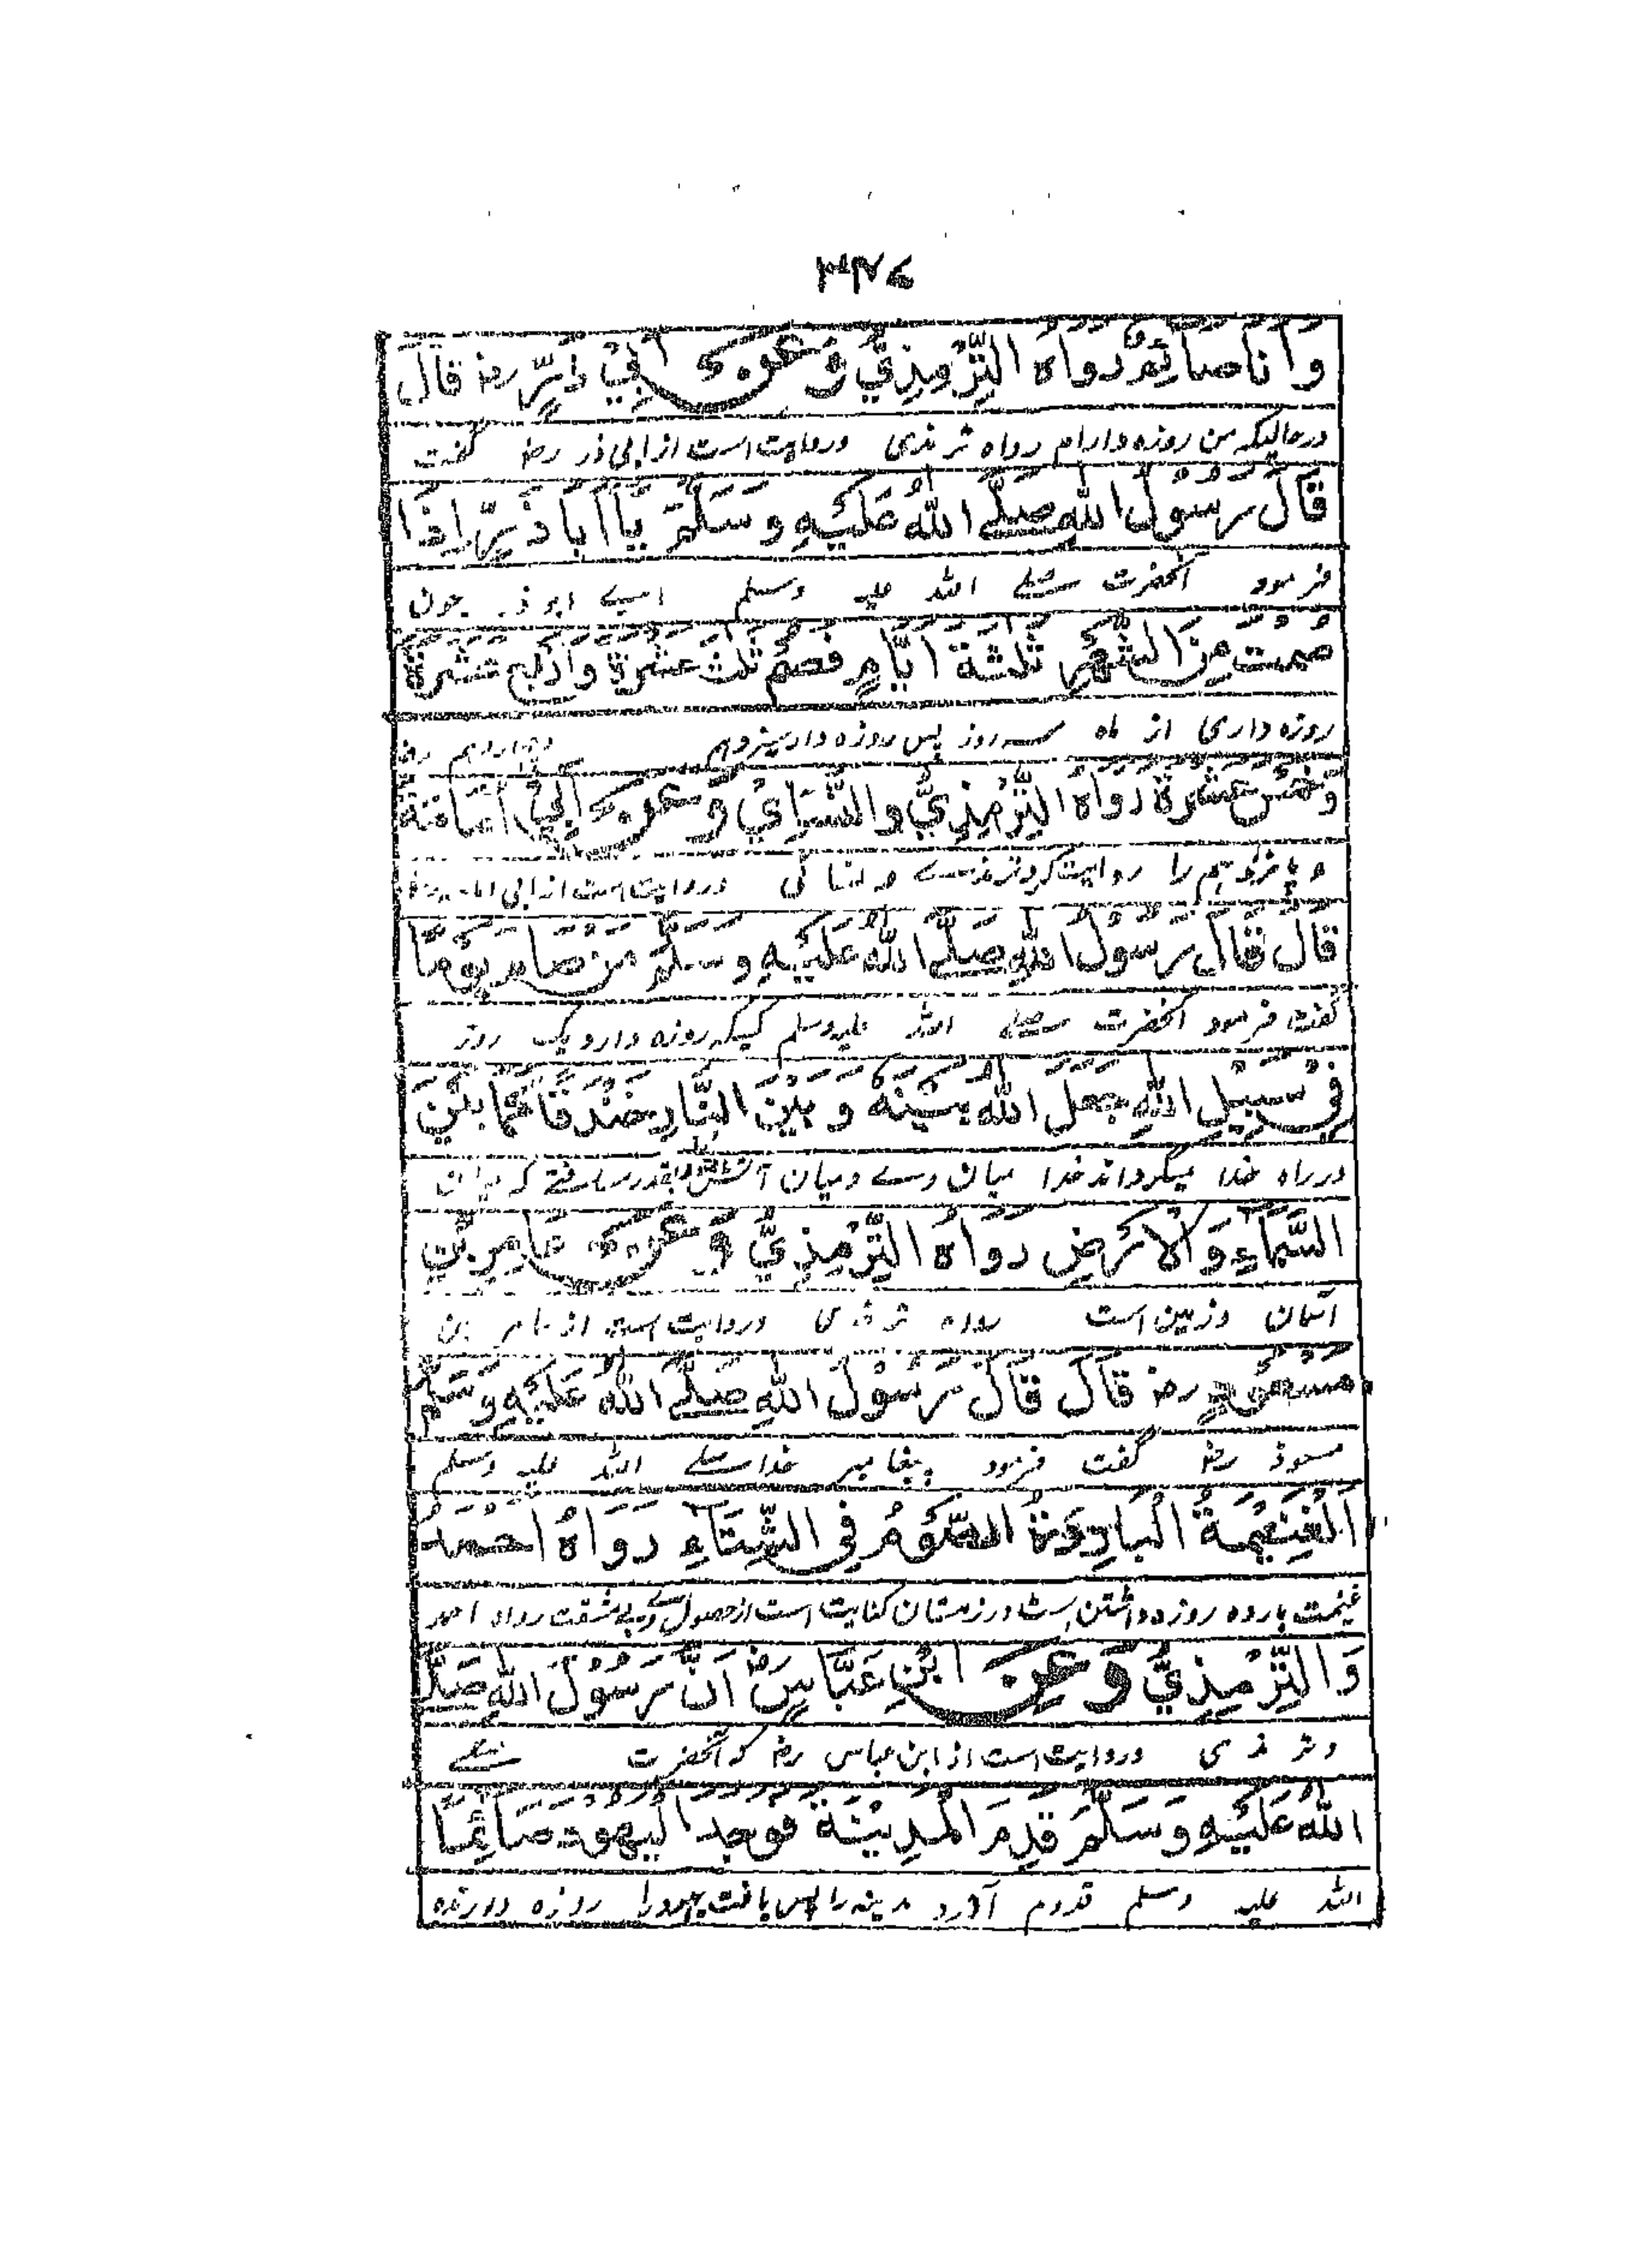 وَاَنَا صَائِمٌ رَوَاهُ التِّرْمِذِيُّ وَعَنْ اَبِيْ ذَرٍّ رض قَالَ
درحالیکه من روزه دارام رواه ترمذی وروایت است از ابی ذر رض گفت
قَالَ رَسُوْلُ اللهِ صَلَّے اللهُ عَلَيْهِ وَسَلَّمَ يَآ اَبَا ذَرٍّ اِذَا
فرمود آنحضرت صلے الله علیه وسلم اے ابو ذر چون
صُمْتَ مِنَ الشَّهْرِ ثَلٰثَةَ اَيَّامٍ فَصُمْ ثَلٰثَ عَشْرَةَ وَاَرْبَعَ عَشْرَةَ
روزه داری از ماه سه روز پس روزه دار سیزدهم وچهاردهم
وَخَمْسَ عَشْرَةَ رَوَاهُ التِّرْمِذِيُّ وَالنَّسَائِيُّ وَعَنْ اَبِيْ اُمَامَةَ
و پانزدهم را روایت کرد ترمذے و نسائی وروایت است از ابی امامه رض
قَالَ قَالَ رَسُوْلُ اللهِ صَلَّے اللهُ عَلَيْهِ وَسَلَّمَ مَنْ صَامَ يَوْمًا
گفت فرمود آنحضرت صلے الله علیه وسلم کسیکه روزه دارد یک روز
فِيْ سَبِيْلِ اللهِ جَعَلَ اللهُ بَيْنَهٗ وَبَيْنَ النَّارِ خَنْدَقًا كَمَا بَيْنَ
در راه خدا میگرداند خدا میان وے ومیان آتش بقدر مسافتے که میان
السَّمَآءِ وَالْاَرْضِ رَوَاهُ التِّرْمِذِيُّ وَعَنْ عَامِرِ بْنِ
آسمان وزمین است رواه ترمذی وروایت است از عامر بن
مَسْعُوْدٍ رض قَالَ قَالَ رَسُوْلُ اللهِ صَلَّے اللهُ عَلَيْهِ وَسَلَّمَ
مسعود رض گفت فرمود پیغامبر خدا صلے الله علیه وسلم
اَلْغَنِيْمَةُ الْبَارِدَةُ الصَّوْمُ فِي الشِّتَآءِ رَوَاهُ اَحْمَدُ
غنیمت بارده روزه داشتن است در زمستان کنایت است از حصول بی مشقت رواه احمد
وَالتِّرْمِذِيُّ وَعَنِ ابْنِ عَبَّاسٍ رض اَنَّ رَسُوْلَ اللهِ صَلَّے
وترمذی وروایت است از ابن عباس رض که آنحضرت صلے
اللهُ عَلَيْهِ وَسَلَّمَ قَدِمَ الْمَدِيْنَةَ فَوَجَدَ الْيَهُوْدَ صَائِمًا
الله علیه وسلم قدوم آورد مدینه را پس یافت یهود را روزه دارنده